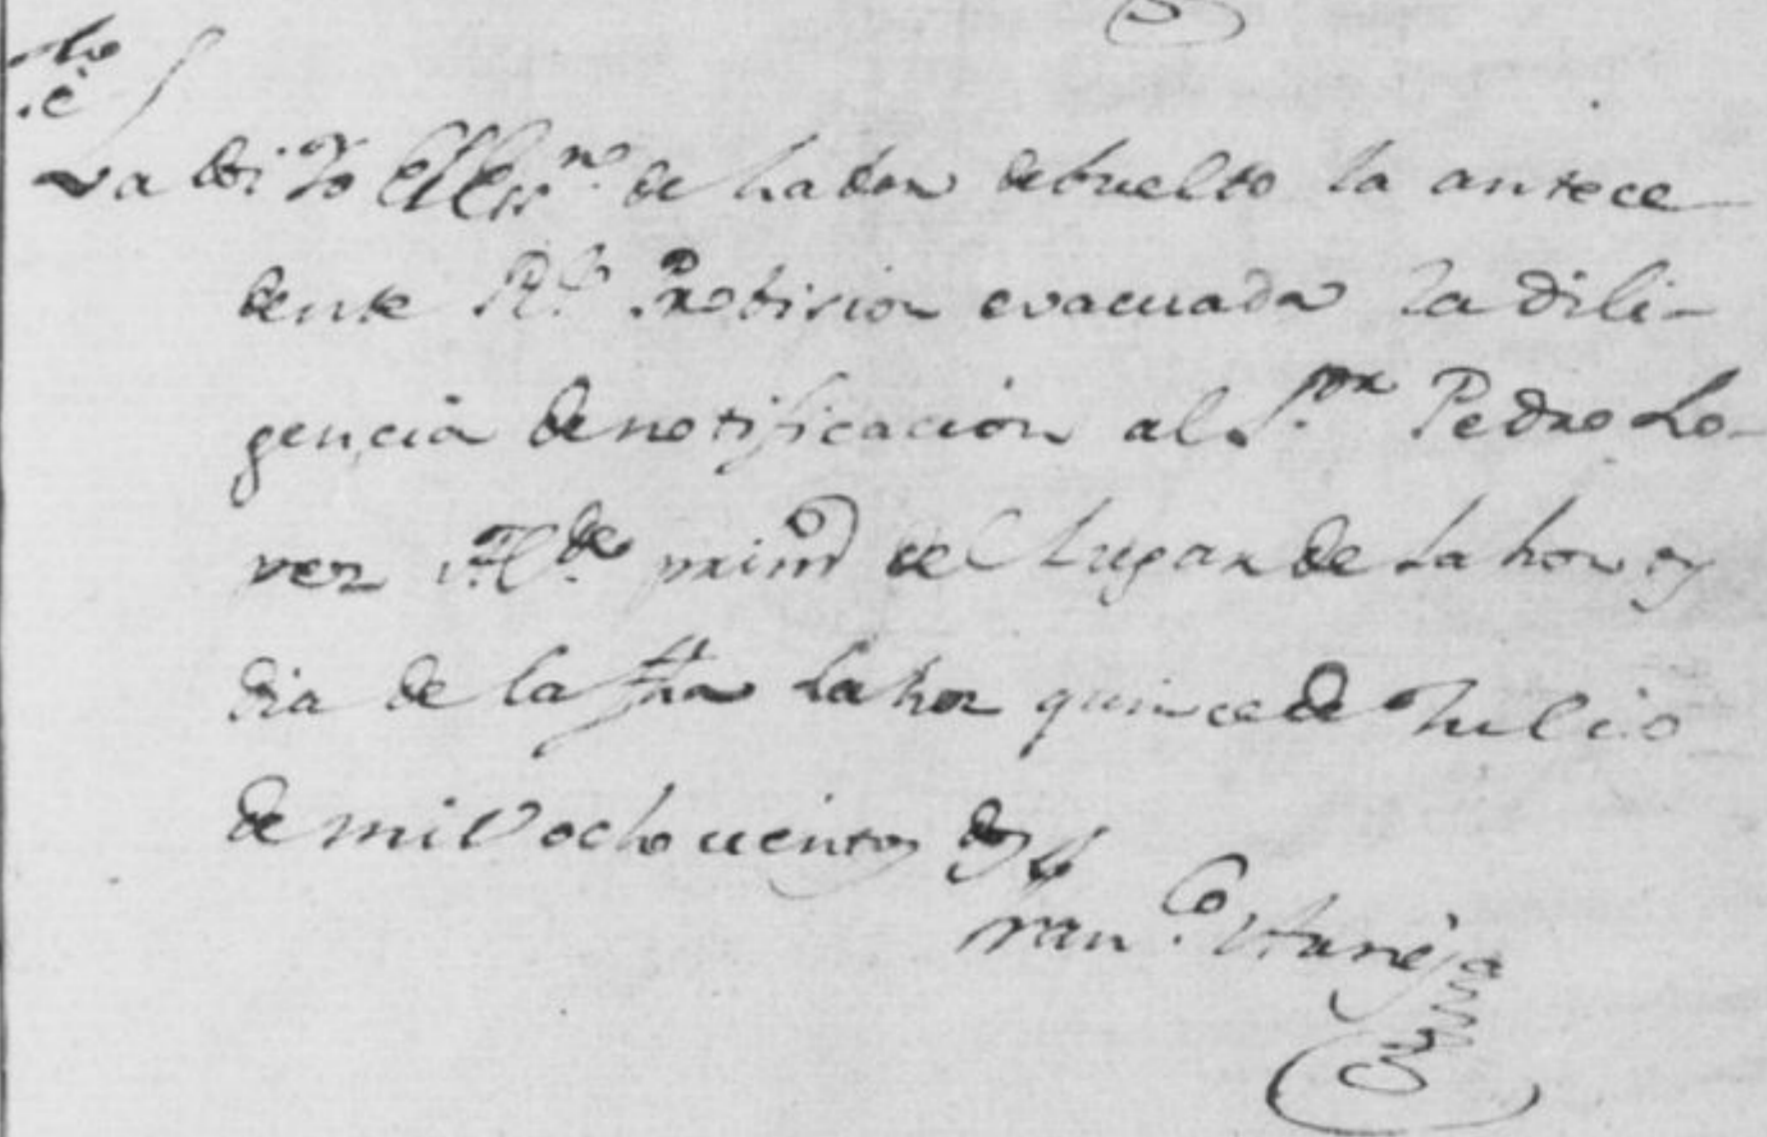 La doi Yo el Essno. de haber debuelto la antece
dente Rl. Probision evacuada la dili-
gencia de notificacion al Sor. Pedro Lo-
rer Alde. primo del Lugar de Lahoz oy
dia de la fha Lahoz quince de Julio
de mil ochocientos dos
Franco.